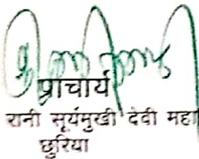 प्राचार्य
रानी सूर्यमुखी देवी महा
छुरिया